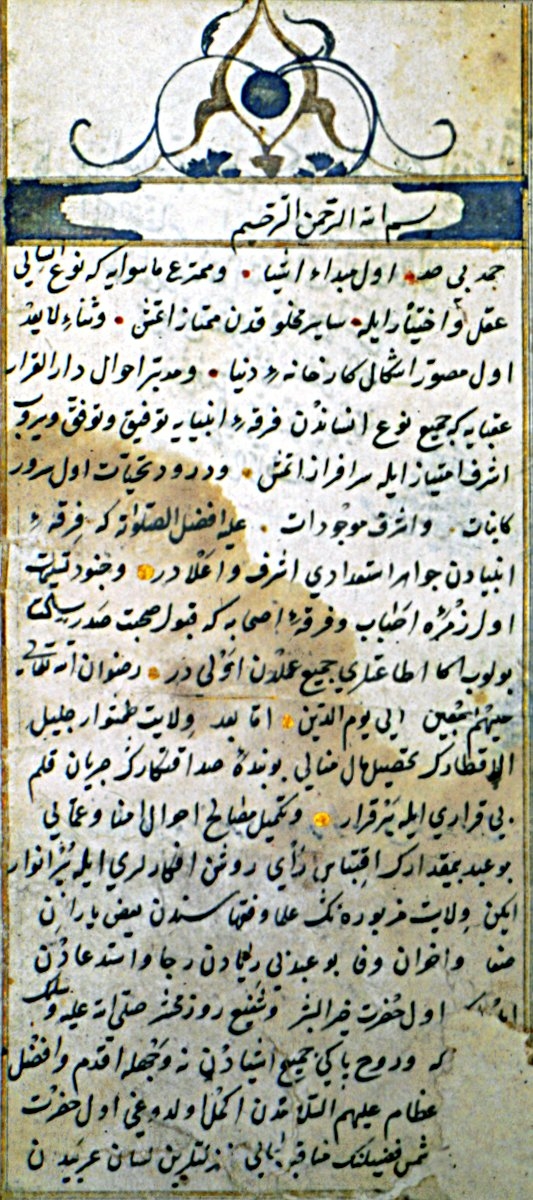 بسم الله الرحمن الرحيم
حمد بى حد اول مبداء اشيا و مخترع ماسوايه كه نوع انسانى
عقل و اختيار ايله ساير مخلوقدن ممتاز اتمش و ثناء لا يعد
اول مصوّر اشكال كارخانهٔ دنيا و مدبّر احوال دار القرار
عقبايه كه جميع نوع انساندن فرقهٔ انبيايه توفيق و توفّق ويروب
اشرف امتياز ايله سرافراز اتمش و درود و تحيّات اول سرور
كاينات و اشرف موجودات عليه افضل الصلواته كه فرقهٔ
انبيادن جواهر استعدادى اشرف و اعلادر و جنود تسليمات
اول زمرهٔ احباب و فرقهٔ اصحابه كه قبول صحبت صدر
بولوب اكا اطاعتلرى جميع عملدن اولى در رضوان الله تعالى
عليهم اجمعين الى يوم الدين امّا بعد ولايت جليل
الاقطارك تحصيل مال منالى بو بندهٔ صداقتكارك جريان قلم
بى قرارى ايله برقرار و تكميل مصالح احوال امنا و عمّالى
بو عبد بيمقدارك اقتباس رأى روشن افكارلرى ايله پر انوار
ايكن ولايت مزبوره نك علما و فقهاسندن بعض ياران
صفا و اخوان وفا بو عبد بى ريادن رجا و استدعا
اول حضرت خير البشر و شفيع روز محشر صلى الله عليه و سلمك
كه و روح پاكى جميع اشيادن نه وجهله اقدم و افضل
عظام عليهم السلامدن اكمل اولدوغى اول حضرت
فضيلتك لسان عربيدن